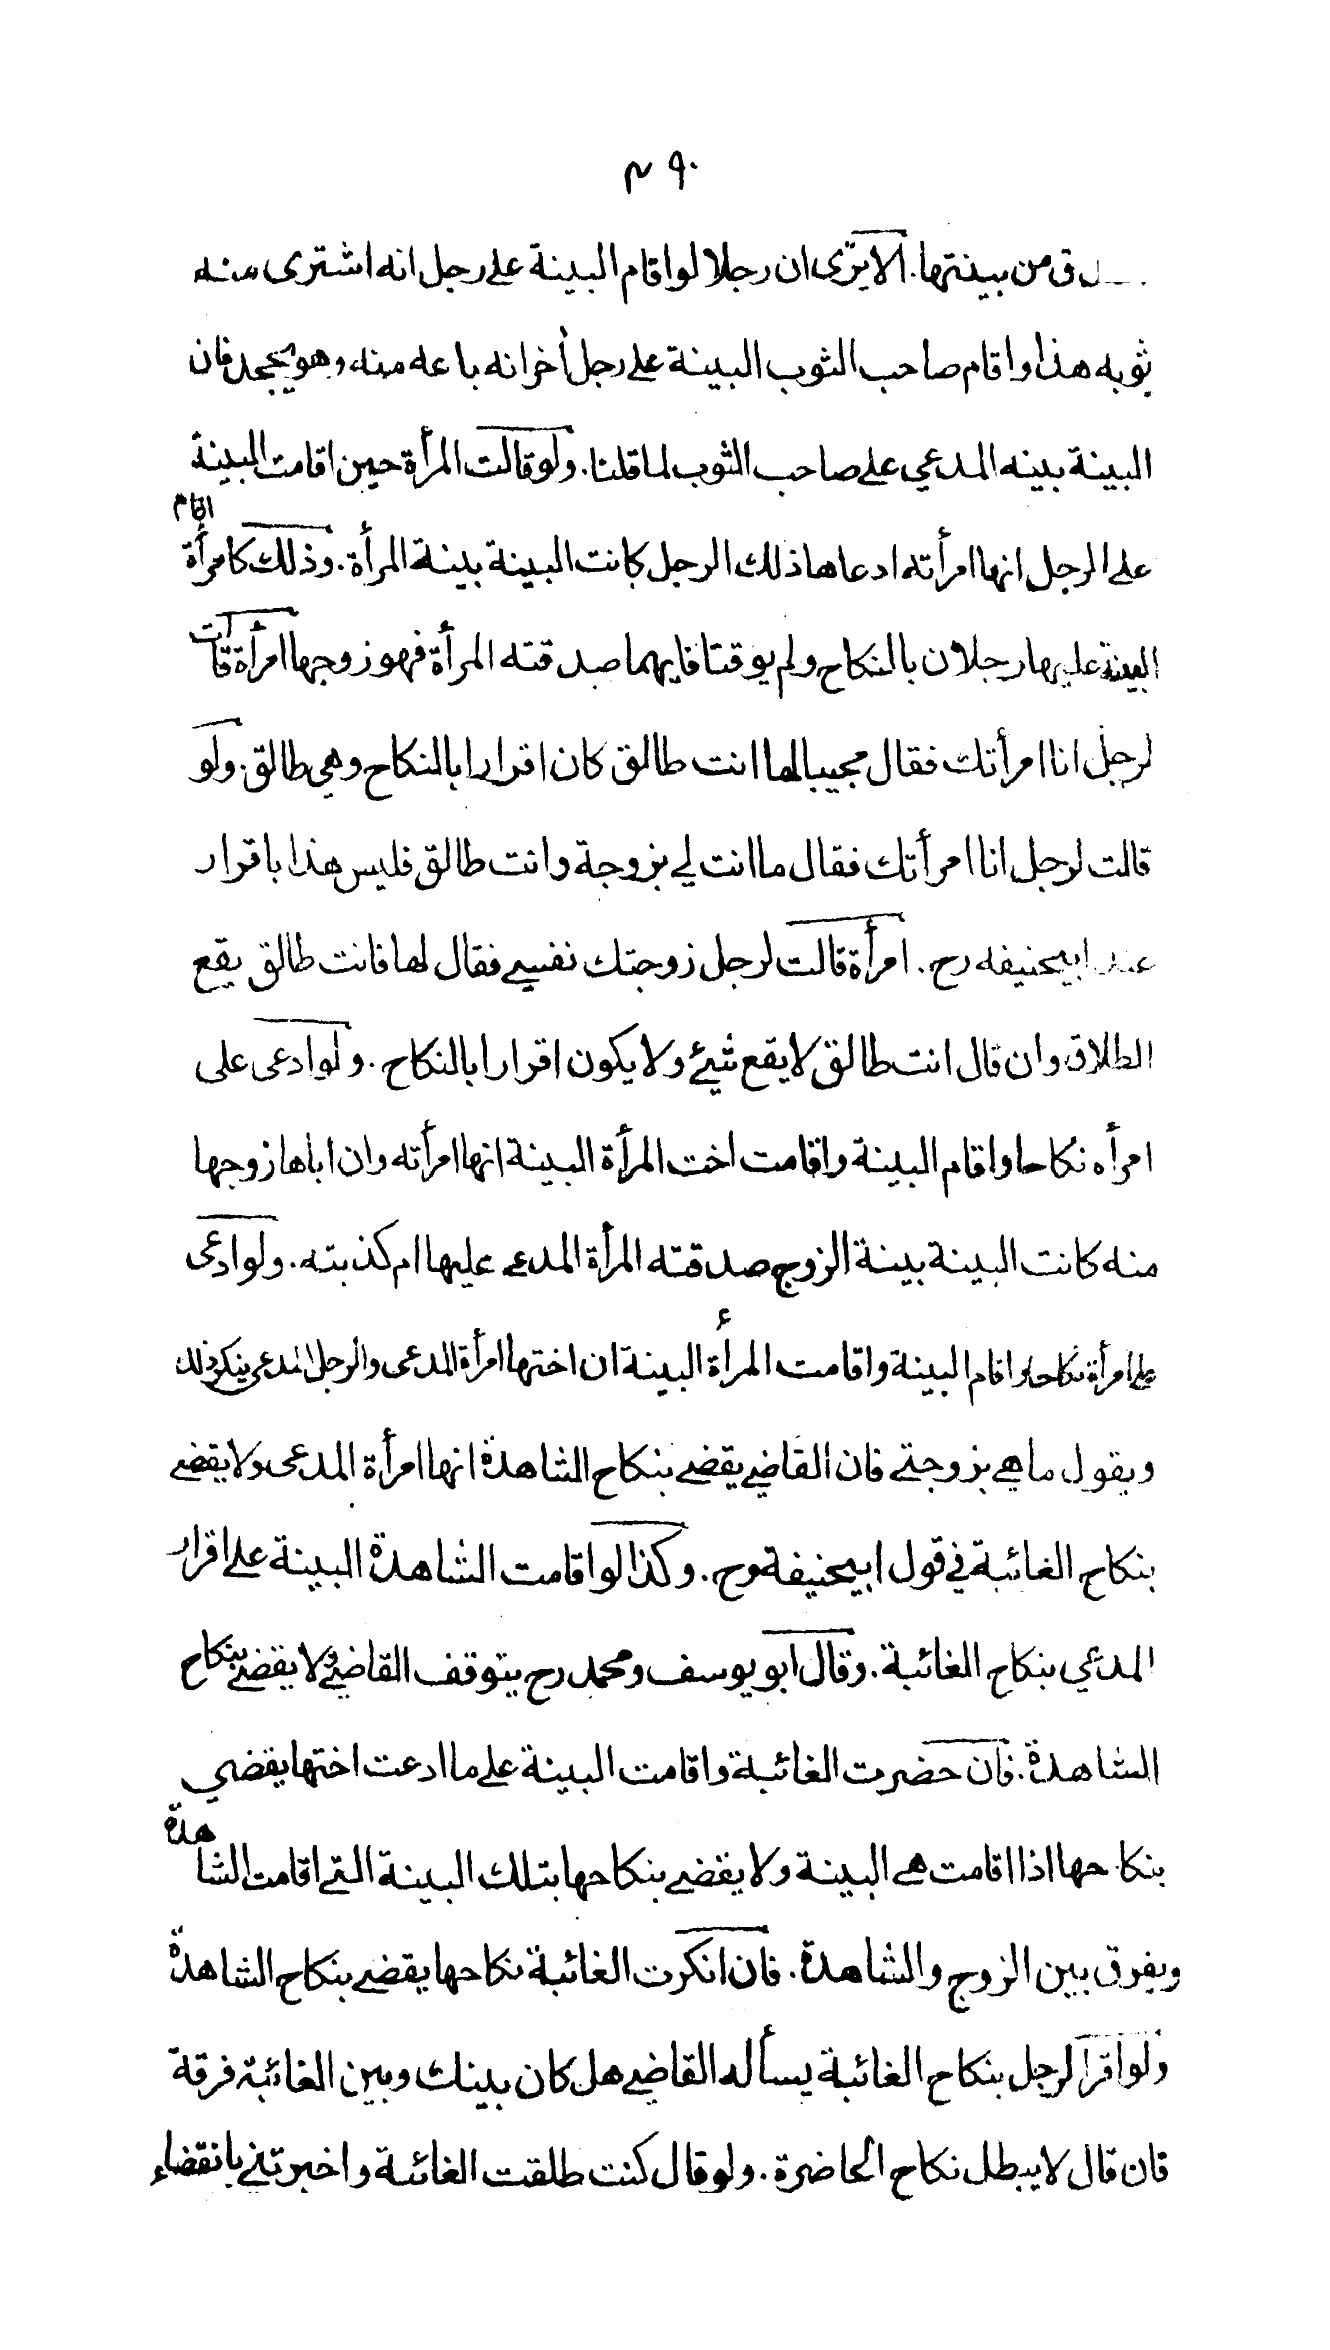 ٤٩٠
ق من بينتها. الا يرى ان رجلا لو اقام البينة على رجل انه اشترى منه
ثوبه هذا واقام صاحب الثوب البينة على رجل أخر انه باعه منه وهو يجحد فان
البينة بينه المدعي على صاحب الثوب لما قلنا. ولو قالت المرأة حين اقامت البينة
على الرجل انها امرأته ادعاها ذلك الرجل كانت البينة بينة المرأة. وذلك كامرأة اقام
البينة عليها رجلان بالنكاح ولم يوقتا فايهما صدقته المرأة فهو زوجها امرأة قالت
لرجل انا امرأتك فقال مجيبا لها انت طالق كان اقرارا بالنكاح وهي طالق. ولو
قالت لرجل انا امرأتك فقال ما انت لي بزوجة وانت طالق فليس هذا باقرار
عند ابيحنيفه رح. امرأة قالت لرجل زوجتك نفسي فقال لها فانت طالق يقع
الطلاق وان قال انت طالق لا يقع شيئ ولا يكون اقرارا بالنكاح. ولو ادعى على
امرأه نكاحا واقام البينة واقامت اخت المرأة البينة انها امرأته وان اباها زوجها
منه كانت البينة بينة الزوج صدقته المرأة المدعى عليها ام كذبته. ولو ادعى
على امرأة نكاحا واقام البينة واقامت المرأة البينة ان اختها امرأة المدعى والرجل المدعى ينكر ذلك
ويقول ما هي بزوجتي فان القاضي يقضي بنكاح الشاهدة انها امرأة المدعى ولا يقضي
بنكاح الغائبة في قول ابيحنيفة رح. وكذا لو اقامت الشاهدة البينة على اقرار
المدعي بنكاح الغائبة. وقال ابو يوسف ومحمد رح يتوقف القاضي ولا يقضي بنكاح
الشاهدة. فان حضرت الغائبة واقامت البينة على ما ادعت اختها يقضي
بنكاحها اذا اقامت هي البينة ولا يقضي بنكاحها بتلك البينة التي اقامت الشاهدة
ويفرق بين الزوج والشاهدة. فان انكرت الغائبة نكاحها يقضي بنكاح الشاهدة
ولو اقر الرجل بنكاح الغائبة يسأله القاضي هل كان بينك وبين الغائبة فرقة
فان قال لا يبطل نكاح الحاضرة. ولو قال كنت طلقت الغائبة واخبرتني بانقضاء